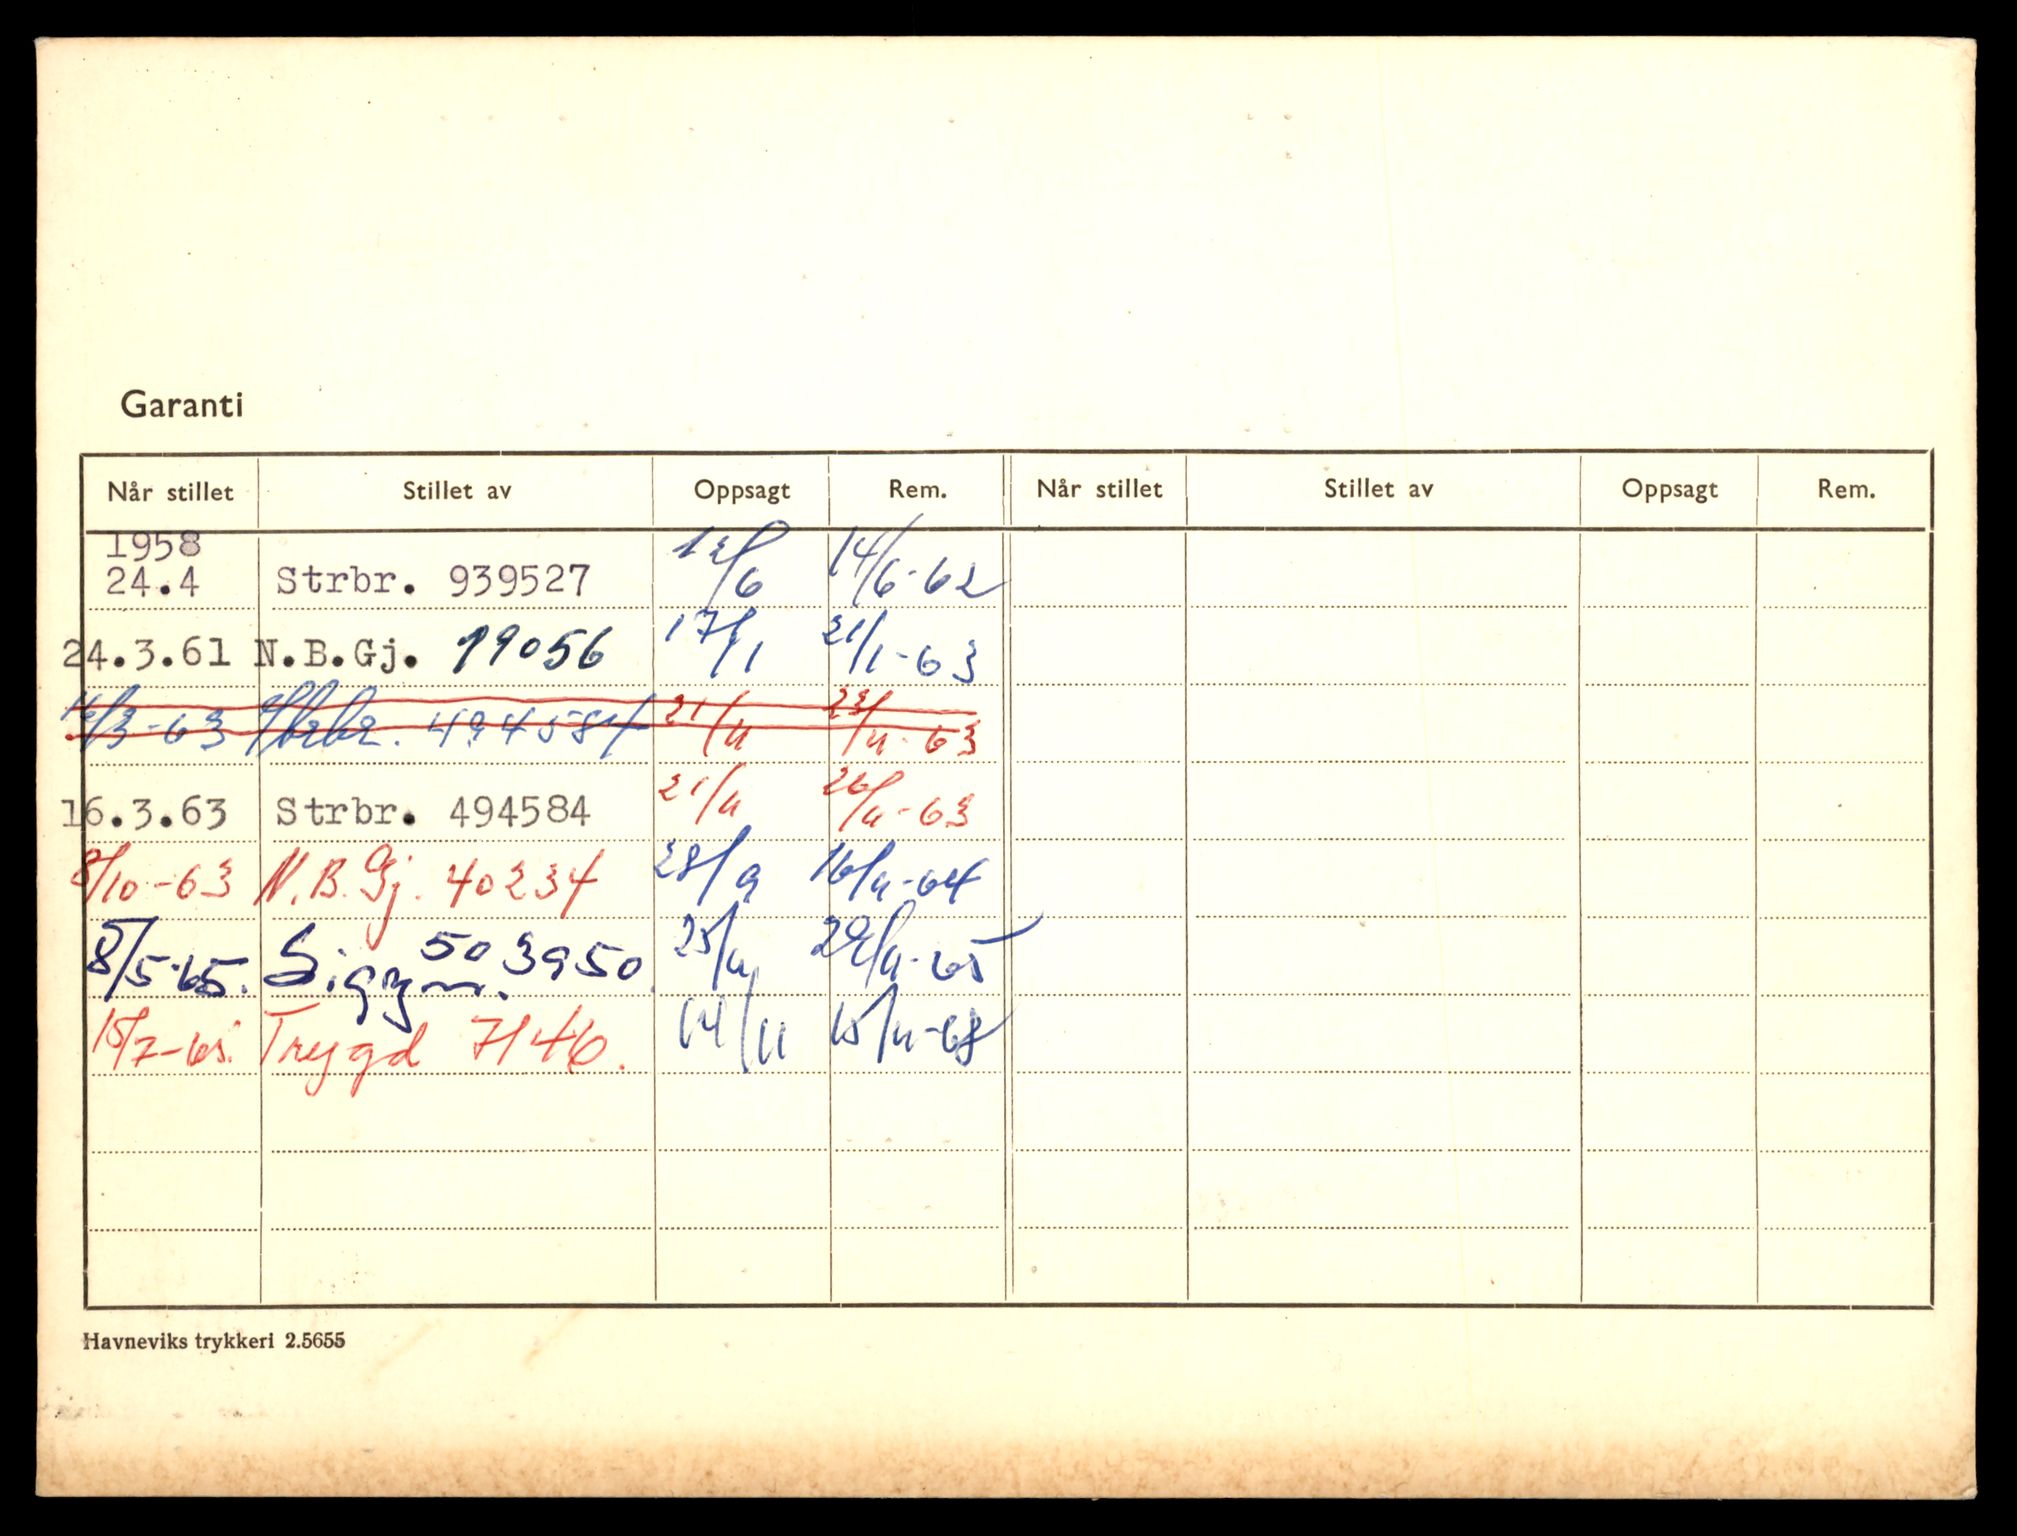 Garanti
Når stillet Stillet av Oppsagt Rem. Når stillet Stillet av Oppsagt Rem.
1958
24.4 Strbr. 939527 12/6 14/6-62
24.3.61 N.B.Gj. 19056 17/1 21/1-63
16/3-63 Strbr. 494584 21/11 23/11-63
16.3.63 Strbr. 494584 21/11 26/11-63
8/10-63 N.B.Gj. 40234 28/9 16/11-64
8/5-65. Sigm. 503950. 25/11 29/11-65
15/7-65. Trygd 7146. 14/11 15/11-68
Havneviks trykkeri 2.5655